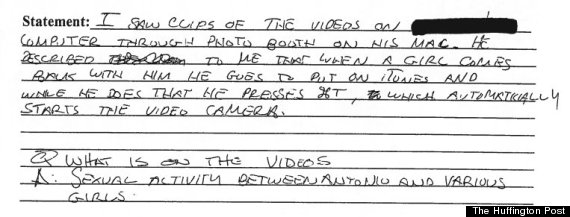 Statement: I SAW CLIPS OF THE VIDEOS ON
COMPUTER THROUGH PHOTO BOOTH ON HIS MAC. HE
DESCRIBED TO ME THAT WHEN A GIRL COMES
BACK WITH HIM HE GOES TO PUT ON ITUNES AND
WHILE HE DOES THAT HE PRESSES ⌘T, WHICH AUTOMATICIALLY
STARTS THE VIDEO CAMERA.
Q WHAT IS ON THE VIDEOS
A: SEXUAL ACTIVITY BETWEEN ANTONIO AND VARIOUS
GIRLS.
The Huffington Post